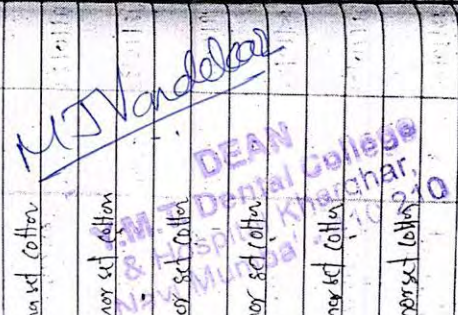 MJVandekar
DEAN
Y.M.T. Dental College
& Hospital, Kharghar,
Navi Mumbai - 410 210
set cotton
nor set cotton
nor set cotton
nor set cotton
nor set cotton
nor set cotton